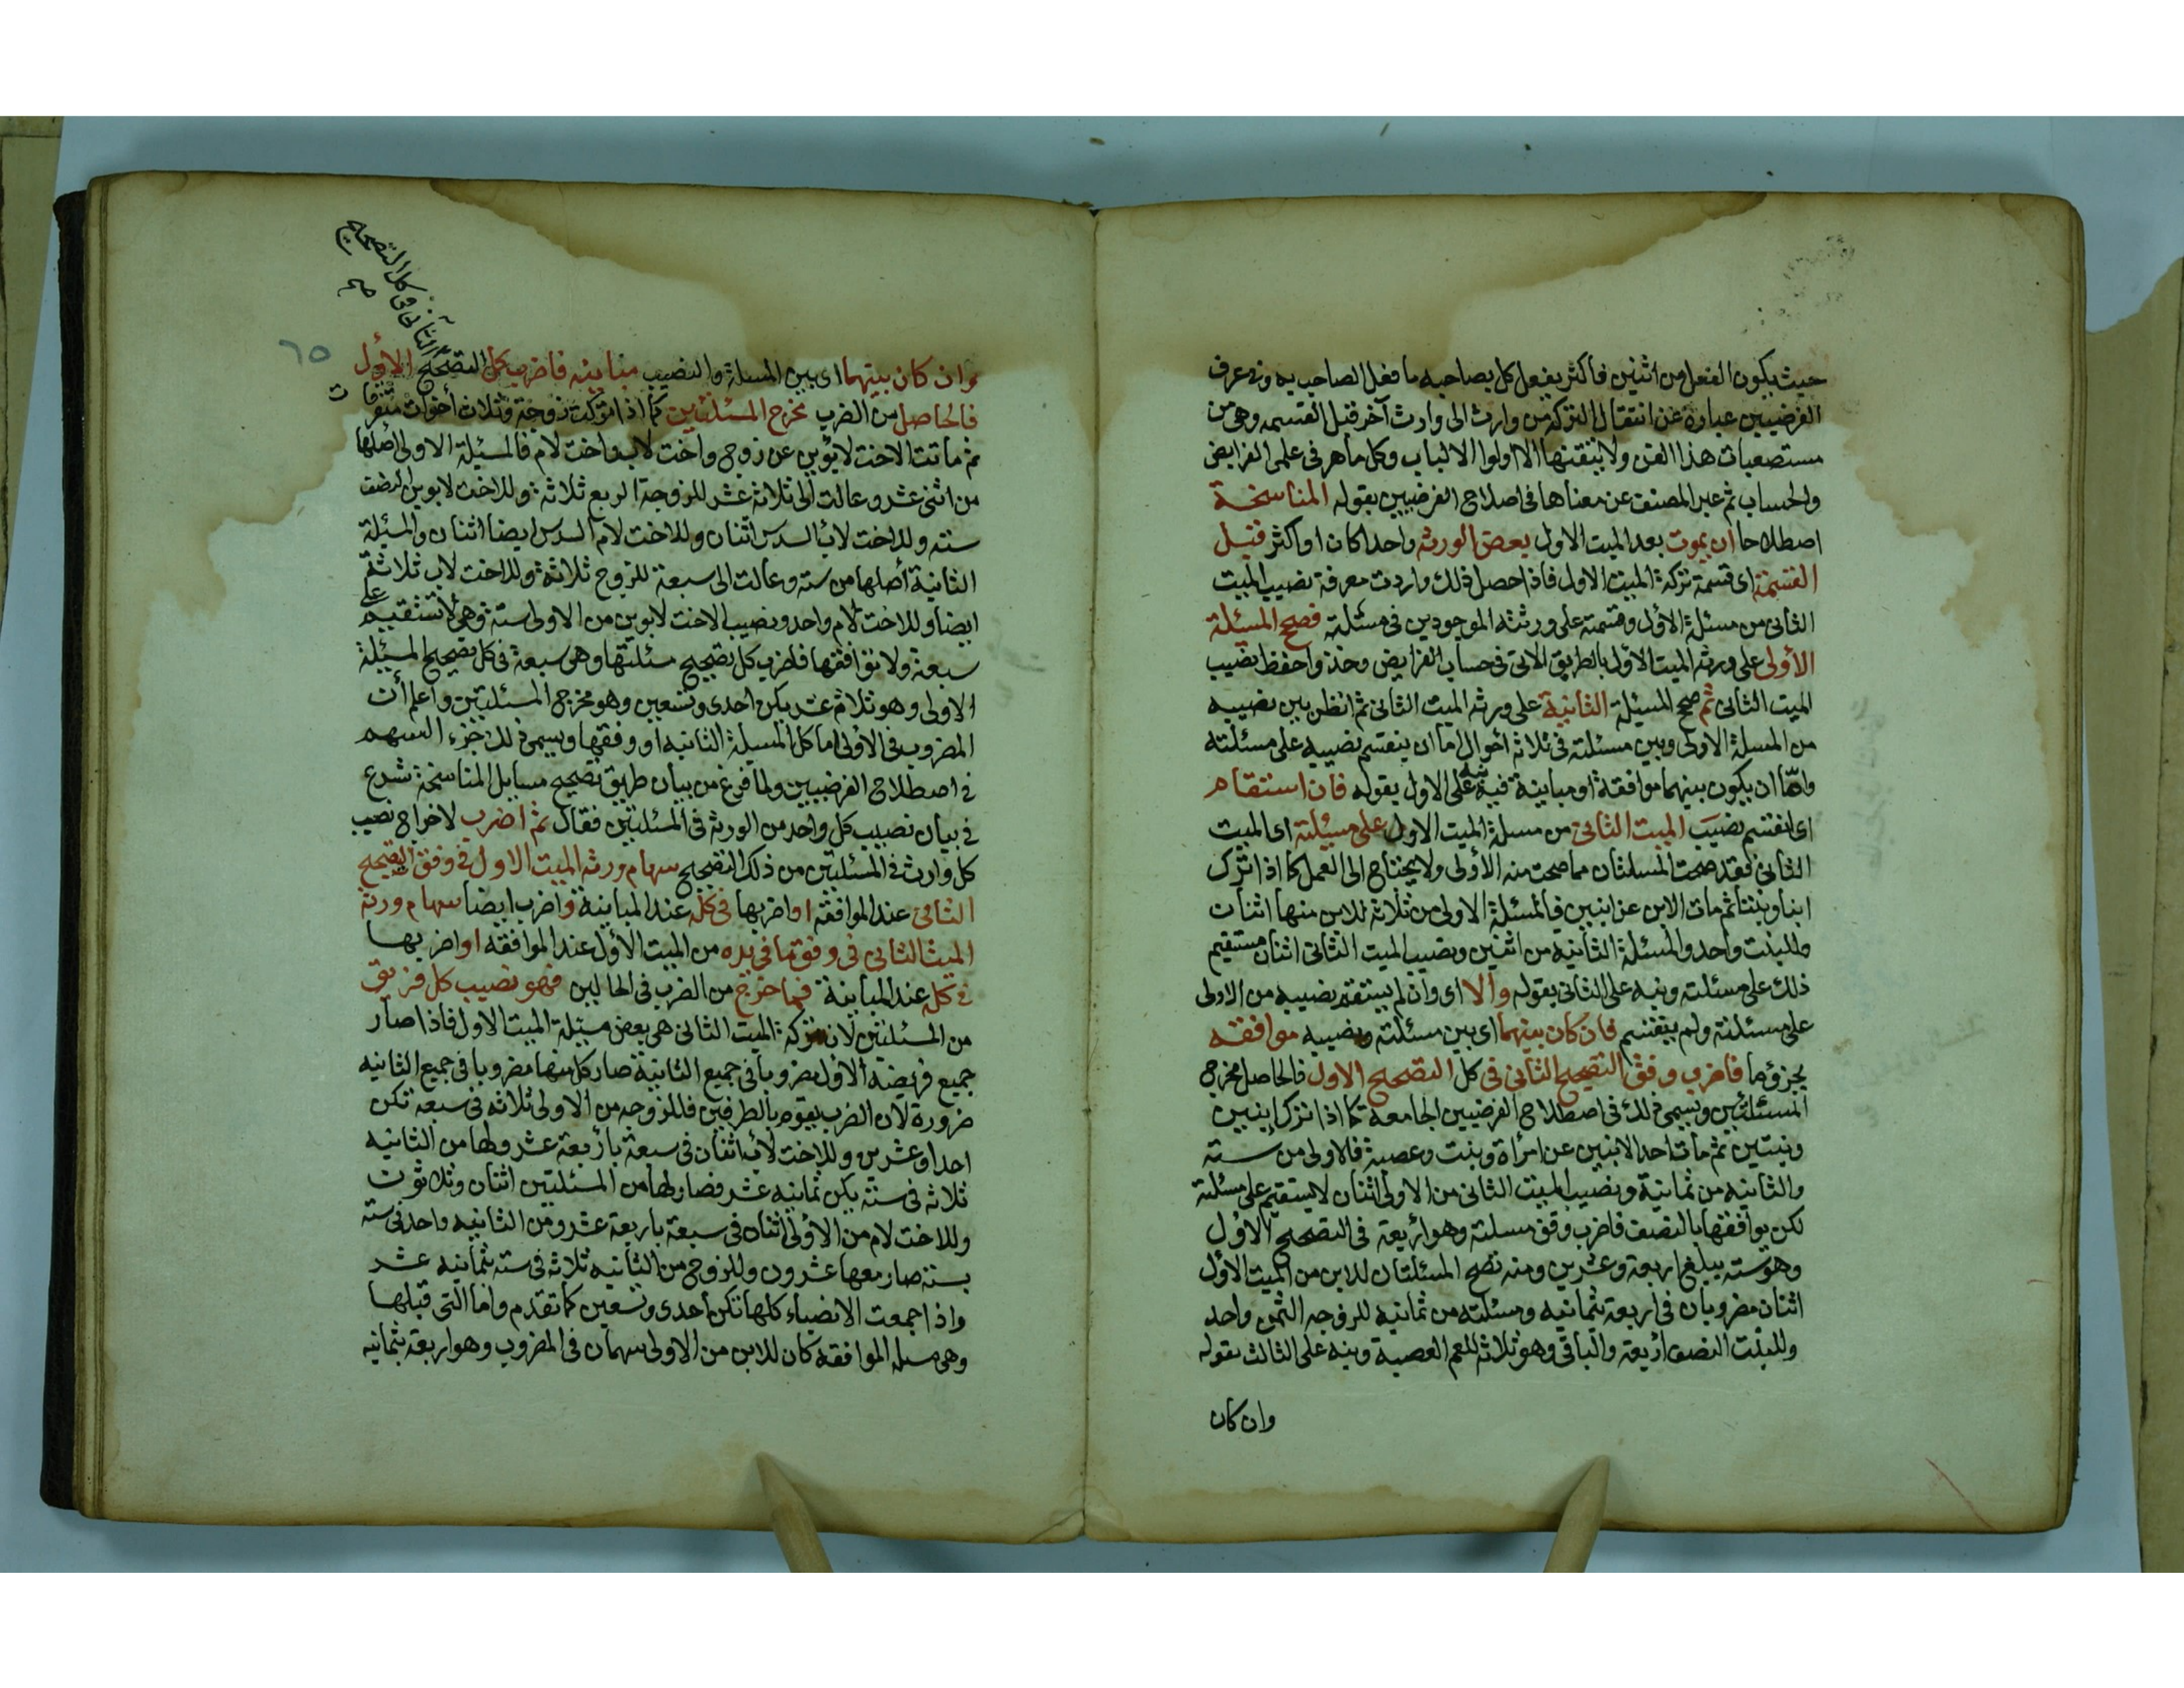 حيث يكون الفعل من اثنين فأكثر يفعل كل بصاحبه ما فعل الصاحب به وفي عرف
الفرضيين عبارة عن انتقال التركة من وارث الى وارث آخر قبل القسمه وهي من
مستصعبات هذا الفن ولا يتقنها الا اولوا الالباب وكل ماهر في علمي الفرايض
والحساب ثم عبر المصنف عن معناها في اصلاح الفرضيين بقوله المناسخة
اصطلاحا ان يموت بعد الميت الاول بعض الورثه واحدا كان او اكثر قبل
القسمة اي قسمة تركة الميت الاول فاذا حصل ذلك واردت معرفة نصيب الميت
الثاني من مسئلة الأول وقسمته على ورثته الموجودين في مسئلته فصحح المسئلة
الأولى على ورثه الميت الاول بالطريق الاتي في حساب الفرايض وخذ واحفظ نصيب
الميت الثاني ثم صحح المسيلة الثانية على ورثة الميت الثاني ثم انظر بين نصيبه
من المسلة الاولى وبين مسئلته في ثلاثة أحوال اما ان ينقسم نصيبه على مسئلته
واما ان يكون بينهما موافقة او مباينة فنبه على الاول بقوله فان استقام
اي انقسم نصيب الميت الثاني من مسلة الميت الاول على مسئلته اي الميت
الثاني فقد صحت المسلتان مما صحت منه الأولى ولا يحتاج الى العمل كما اذا ترك
ابنا وبنتا ثم مات الابن عن ابنين فالمسئلة الاولى من ثلاثة للابن منها اثنان
وللبنت واحد والمسئلة الثانيه من اثنين ونصيب الميت الثاني اثنان مستقيم
ذلك على مسئلته ونبه على الثاني بقوله والا اي وان لم يستقم نصيبه من الاولى
على مسئلته ولم ينقسم فان كان بينهما اي بين مسئلته ونصيبه موافقه
بجزؤ ما فاضرب وفق التصحيح الثاني في كل التصحيح الاول فالحاصل مخرج
المسئلتين ويسمى ذلك في اصطلاح الفرضيين الجامعة كما اذا ترك ابنين
وبنتين ثم مات احد الابنين عن امرأة وبنت وعصبة فالاولى من سته
والثانيه من ثمانية ونصيب الميت الثاني من الاولى اثنان لا يستقيم على مسئلته
لكن يوافقها بالنصف فاضرب وفق مسلته وهو اربعة في التصحيح الاول
وهو سته يبلغ اربعة وعشرين ومنه تصح المسئلتان للابن من الميت الاول
اثنان مضروبان في اربعة بثمانيه ومسئلته من ثمانية للزوجه الثمن واحد
وللبنت النصف اربعة والباقي وهو ثلاثة للعم العصبة ونبه على الثالث بقوله
وان كان
الثاني في كل التصحيح
صح
٦٥
وان كان بينهما اي بين المسلة والنصيب مباينه فاضرب كل التصحيح الاول
فالحاصل من الضرب مخرج المسئلتين كما اذا ترك زوجة وثلاث أخوات متفرقات
ثم ماتت الاخت لابوين عن زوج واخت لاب واخت لام فالمسئلة الاولى اصلها
من اثني عشر وعالت الى ثلاثة عشر للزوجة الربع ثلاثة وللاخت لابوين النصف
سته وللاخت لاب السدس اثنان وللاخت لام السدس ايضا اثنان والمسئلة
الثانية أصلها من سته وعالت الى سبعة للزوج ثلاثة وللاخت لاب ثلاثة
ايضا وللاخت لام واحد ونصيب الاخت لابوين من الاولى ستة وهي لا تستقيم على
سبعة ولا توافقها فاضرب كل تصحيح مسئلتها وهي سبعة في كل تصحيح المسئلة
الاولى وهو ثلاثة عشر يكن احدى وتسعين وهو مخرج المسئلتين واعلم أن
المضروب في الاولى اما كل المسيلة الثانيه او وفقها ويسمى ذلك جزء السهم
في اصطلاح الفرضيين ولما فرغ من بيان طريق تصحيح مسايل المناسخة شرع
في بيان نصيب كل واحد من الورثة في المسئلتين فقال ثم اضرب لاخراج نصيب
كل وارث في المسئلتين من ذلك التصحيح سهام ورثة الميت الاول في وفق التصحيح
الثاني عند الموافقه او اضربها في كله عند المباينة واضرب ايضا سهام ورثة
الميت الثاني في وفق ما في يده من الميت الأول عند الموافقه او اضربها
في كل عند المباينة فما خرج من الضرب في الحالين فهو نصيب كل فريق
من المسئلتين لان تركة الميت الثاني هي بعض مسئلة الميت الاول فاذا صار
جميع فريضة الأول مضروبا في جميع الثانية صار كل منها مضروبا في جميع الثانيه
ضرورة لان الضرب يقوم بالطرفين فللزوجه من الاولى ثلاثه في سبعه تكن
احدا وعشرين وللاخت لاب اثنان في سبعة باربعة عشر ولها من الثانيه
ثلاثه في سته يكن ثمانيه عشر فصار لها من المسئلتين اثنان وثلاثون
وللاخت لام من الاولى اثنان في سبعة باربعة عشر ومن الثانيه واحد في سته
بسته صار معها عشرون وللزوج من الثانيه ثلاثه في سته بثمانيه عشر
واذا جمعت الانصباء كلها تكن احدى وتسعين كما تقدم واما التي قبلها
وهي مسله الموافقه كان للابن من الاولى سهمان في المضروب وهو اربعة بثمانيه